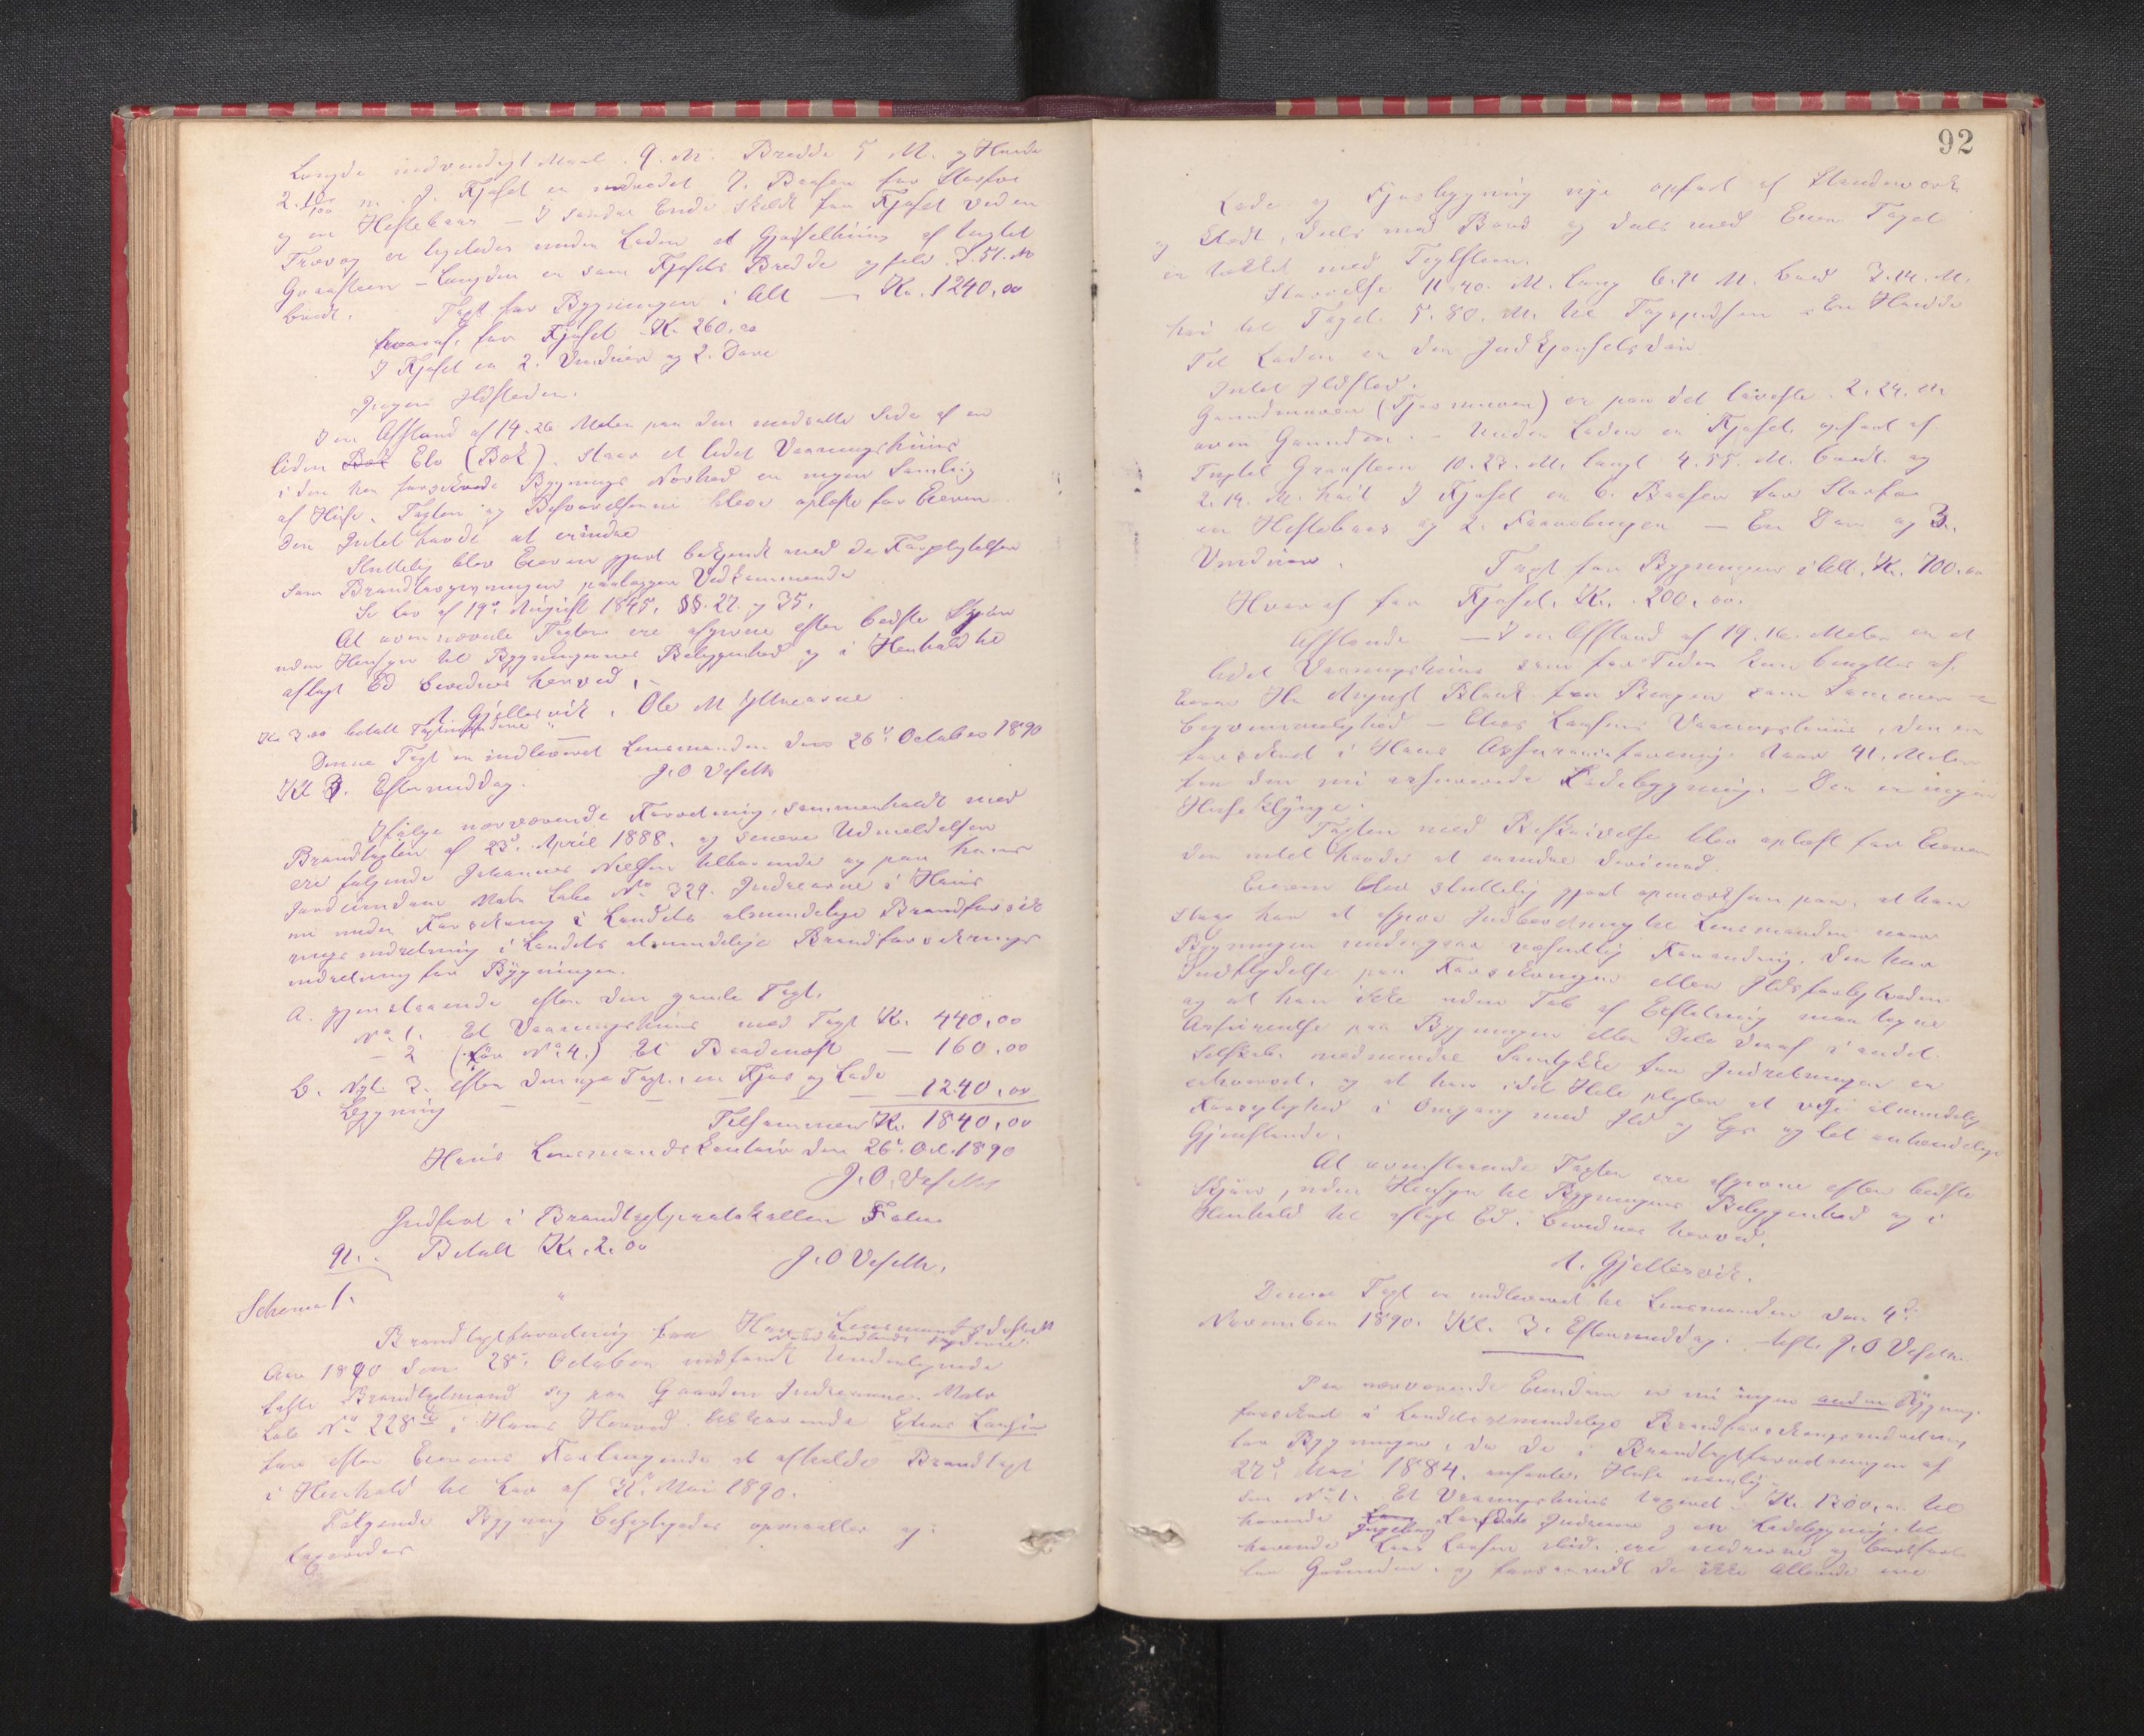 Længde indvendigt Maal 9. M. Bredde 5 M. og Høide
2.10/100 m. I Kjøsel er indredet 7. Baaser for Storfæ
og en Hestebaas — I søndre Ende skildt fra Kjøsel ved en
Trævæg er ligeledes under Laden et Gjødselhuus af tugtet
Graasteen – Længden er som Kjøsels Bredde og selv 3.51. M
bredt. Taxt for Bygningen i Alt — Kr. 1240,00
hvoraf for Kjøsel Kr. 260,00
I Kjøsel er 2. Vinduer og 2. Døre
Ingen Ildsteder.
I en Afstand af 14.26 Meter paa den modsatte Side af en
liden Elv (Bæk). staar et lidet Vaaningshuus
i den her forsikrede Bygnings Nærhed er ingen Samling
af Huse. Taxten og Besvarelserne bleve oplæste for Eieren
den Intet havde at erindre
Sluttelig blev Eieren gjort bekjendt med de Forpligtelser
som Brandlovgivningen paalægger Vedkommende
Se Lov af 19de August 1845, §§. 27. og 35.
At ovennævnte Taxter ere afgivne efter bedste Skjøn
uden Hensyn til Bygningernes Beliggenhed og i Henhold til
aflagt Ed bevidnes herved.
A. Gjellesvik. Ole M
Kr 3.00 betalt Taxtmændene
Denne Taxt er indleveret Lensmanden den 26d October 1890
Kl 3. Eftermiddag. J. O Vefeth
Ifølge nærværende Forretning, sammenholdt med
Brandtaxten af 23d. April 1888. og senere Udmeldelser
ere følgende Johannes Nielsen tilhørende og paa hans
Jordeiendom Matr Løbe No 329. Indrearne i Haus
nu under Forsikring i Landets almindelige Brandforsik
rings indretning i Landets almindelige Brandforsikrings
indretning for Bygninger.
A. gjenstaaende efter den gamle Taxt.
No 1. Et Vaaningshuus med Taxt Kr. 440,00
– 2 (før No 4.) Et Baadenøst — 160,00
B. Nyt. 3. efter den nye Taxt, en Kjøs og Lade
Bygning — — — — — — 1240,00
Tilsammen Kr. 1840,00
Haus Lensmandskontoir den 26d. Oct. 1890
J. O. Vefeth
Indført i Brandtaxtprotokollen Folio
91. Betalt Kr. 2.00 J. O Vefeth.
Schema 1.
Brandtaxtforretning fra Haus Lensmandsdistrikt
Nordhordlands Fogderie.
Aar 1890 den 28d. October indfandt Undertegnede
faste Brandtaxtmand sig paa Gaarden Indrearne. Matr
Løb No 228 i Haus Herred. tilhørende Elias Larsen
for efter Eierens Forlangende at afholde Brandtaxt
i Henhold til Lov af Mai 1890.
Følgende Bygning besigtigedes opmaaltes og
taxeredes
92
Lade og Kjøsbygning nye opført af Standværk
og Stedt, deels med Bord og deels med Even Taget
er tækket med Taglsteen.
Størrelse 11.40. M. lang 6. M. bred 3.14. M.
høi til Taget. 5.80. M. til Tagspidsen i En Høide
Til Laden er den Indkjørselsdør
Intet Ildsted.
Grundmuren (Kjøsmuren) er paa det laveste 2.24. M
over Grunden. – Under Laden er Kjøsel, opført af
Tugtet Graasteen 10.27. M. langt 4.55. M. bredt og
2.14. M. høit I Kjøsel er 6. Baaser for Storfæ
en Hestebaas og 2. Faarebinger — En Dør og 3.
Vinduer. Taxt for Bygningen i Alt. Kr. 700.00
Hvoraf for Kjøsel. Kr. 200,00.
Afstande — I en Afstand af 19.16. Meter er et
lidet Vaaningshuus som for Tiden kun benyttes af
Herr August Blauk fra Bergen som Sommer
bekvemmelighed — Elias Larsens Vaaningshuus, der er
forsikret i Haus Assuranceforening staar 41. Meter
fra den nu assurerede Ladebygning. – Der er ingen
Huseklynge.
Taxten med Beskrivelse blev oplæst for Eieren
der intet havde at erindre derimod.
Eieren blev sluttelig gjort opmærksom paa, at han
strax har at afgive Indberetning til Lensmanden naar
Bygningen undergaar væsentlig Forandring. der har
Indflydelse paa Forsikringen eller Ildsfarligheden
og at han ikke uden Tab af Erstatning maa tegne
Assurance paa Bygningen eller Dele deraf i andet
Selskab. medmindre Samtykke fra Indretningen er
erhvervet. og at han i det Hele pligter at vise almindelig
Forsigtighed i Omgang med Ild og Lys og let antændelige
Gjenstande.
At ovenstaaende Taxter ere afgivne efter bedste
Skjøn, uden Hensyn til Bygningens Beliggenhed og i
Henhold til aflagt Ed. bevidnes herved.
A. Gjellesvik.
Denne Taxt er indleveret til Lensmanden den 4d.
November 1890. Kl. 3. Eftermiddag. test. J. O Vefeth.
Paa nærværende Eiendom er nu ingen anden Bygning
forsikret i Landets almindelige Brandforsikringsindretning
for Bygninger, da de i Brandtaxtforretningen af
27d. Mai 1884. anførte Huse nemlig
den No 1. Et Vaaningshuus taxeret Kr. 1200,00 til
hørende Ingeborg Larsdatr Indrearne og en Ladebygning til
hørende Lars Larsen ibid. ere nedrevne og bortført
fra Grunden. og forsaavidt de ikke Allerede ere